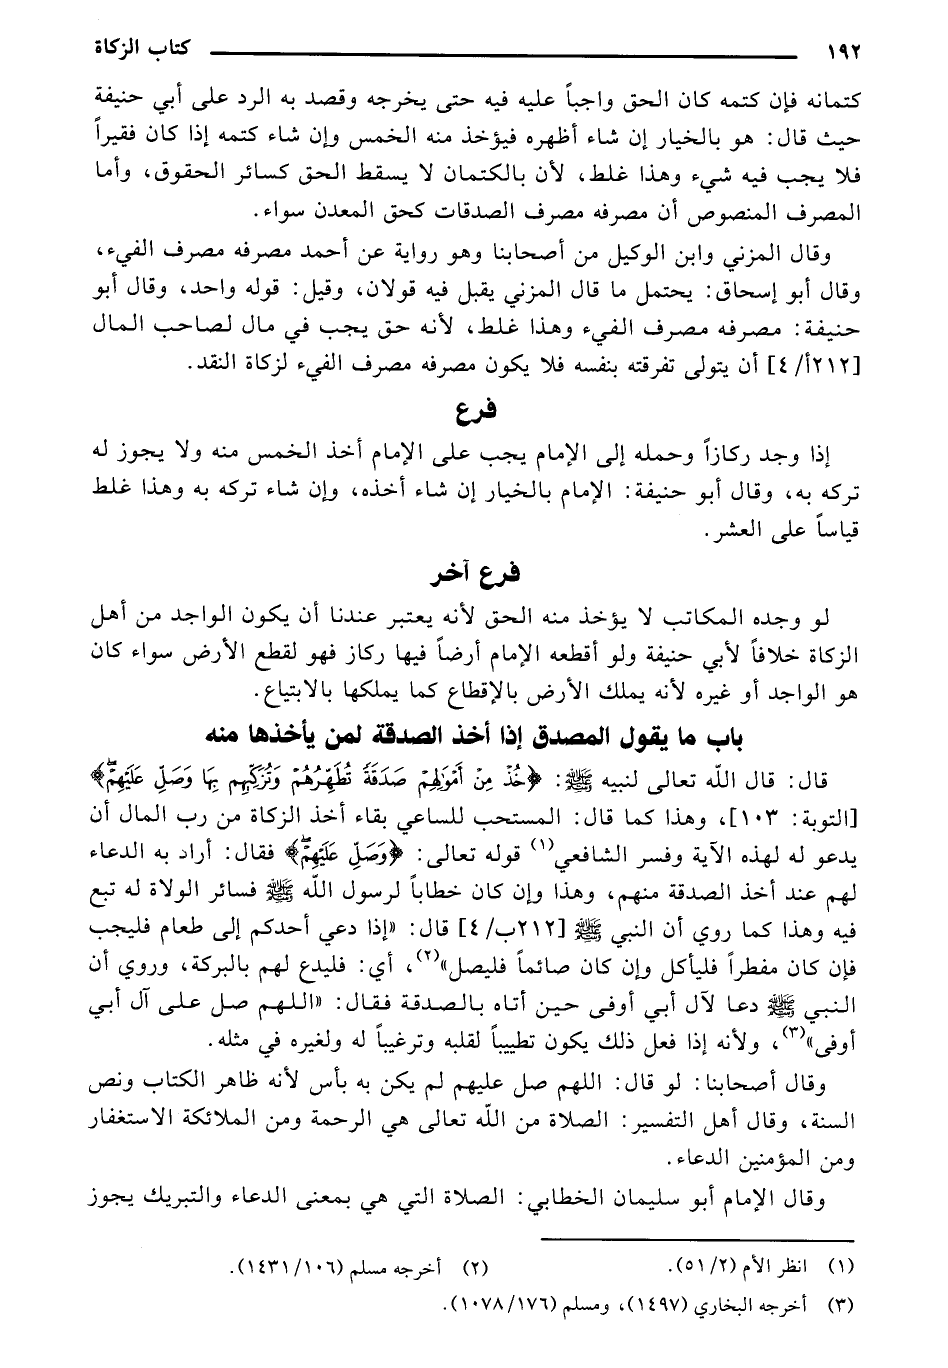 ١٩٢ كتاب الزكاة
كتمانه فإن كتمه كان الحق واجباً عليه فيه حتى يخرجه وقصد به الرد على أبي حنيفة
حيث قال: هو بالخيار إن شاء أظهره فيؤخذ منه الخمس وإن شاء كتمه إذا كان فقيراً
فلا يجب فيه شيء وهذا غلط، لأن بالكتمان لا يسقط الحق كسائر الحقوق، وأما
المصرف المنصوص أن مصرفه مصرف الصدقات كحق المعدن سواء.
وقال المزني وابن الوكيل من أصحابنا وهو رواية عن أحمد مصرفه مصرف الفيء،
وقال أبو إسحاق: يحتمل ما قال المزني يقبل فيه قولان، وقيل: قوله واحد، وقال أبو
حنيفة: مصرفه مصرف الفيء وهذا غلط، لأنه حق يجب في مال لصاحب المال
[٢١٢أ/ ٤] أن يتولى تفرقته بنفسه فلا يكون مصرفه مصرف الفيء لزكاة النقد.
فرع
إذا وجد ركازاً وحمله إلى الإمام يجب على الإمام أخذ الخمس منه ولا يجوز له
تركه به، وقال أبو حنيفة: الإمام بالخيار إن شاء أخذه، وإن شاء تركه به وهذا غلط
قياساً على العشر.
فرع آخر
لو وجده المكاتب لا يؤخذ منه الحق لأنه يعتبر عندنا أن يكون الواجد من أهل
الزكاة خلافاً لأبي حنيفة ولو أقطعه الإمام أرضاً فيها ركاز فهو لقطع الأرض سواء كان
هو الواجد أو غيره لأنه يملك الأرض بالإقطاع كما يملكها بالابتياع.
باب ما يقول المصدق إذا أخذ الصدقة لمن يأخذها منه
قال: قال الله تعالى لنبيه ﷺ: ﴿خُذْ مِنْ أَمْوَالِهِمْ صَدَقَةً تُطَهِّرُهُمْ وَتُزَكِّيهِم بِهَا وَصَلِّ عَلَيْهِمْ﴾
[التوبة: ١٠٣]، وهذا كما قال: المستحب للساعي بقاء أخذ الزكاة من رب المال أن
يدعو له لهذه الآية وفسر الشافعي(١) قوله تعالى: ﴿وَصَلِّ عَلَيْهِمْ﴾ فقال: أراد به الدعاء
لهم عند أخذ الصدقة منهم، وهذا وإن كان خطاباً لرسول الله ﷺ فسائر الولاة له تبع
فيه وهذا كما روي أن النبي ﷺ [٢١٢ب/ ٤] قال: «إذا دعي أحدكم إلى طعام فليجب
فإن كان مفطراً فليأكل وإن كان صائماً فليصل»(٢)، أي: فليدع لهم بالبركة، وروي أن
النبي ﷺ دعا لآل أبي أوفى حين أتاه بالصدقة فقال: «اللهم صل على آل أبي
أوفى»(٣)، ولأنه إذا فعل ذلك يكون تطييباً لقلبه وترغيباً له ولغيره في مثله.
وقال أصحابنا: لو قال: اللهم صل عليهم لم يكن به بأس لأنه ظاهر الكتاب ونص
السنة، وقال أهل التفسير: الصلاة من الله تعالى هي الرحمة ومن الملائكة الاستغفار
ومن المؤمنين الدعاء.
وقال الإمام أبو سليمان الخطابي: الصلاة التي هي بمعنى الدعاء والتبريك يجوز
(١) انظر الأم (٢/ ٥١). (٢) أخرجه مسلم (١٠٦/ ١٤٣١).
(٣) أخرجه البخاري (١٤٩٧)، ومسلم (١٧٦/ ١٠٧٨).